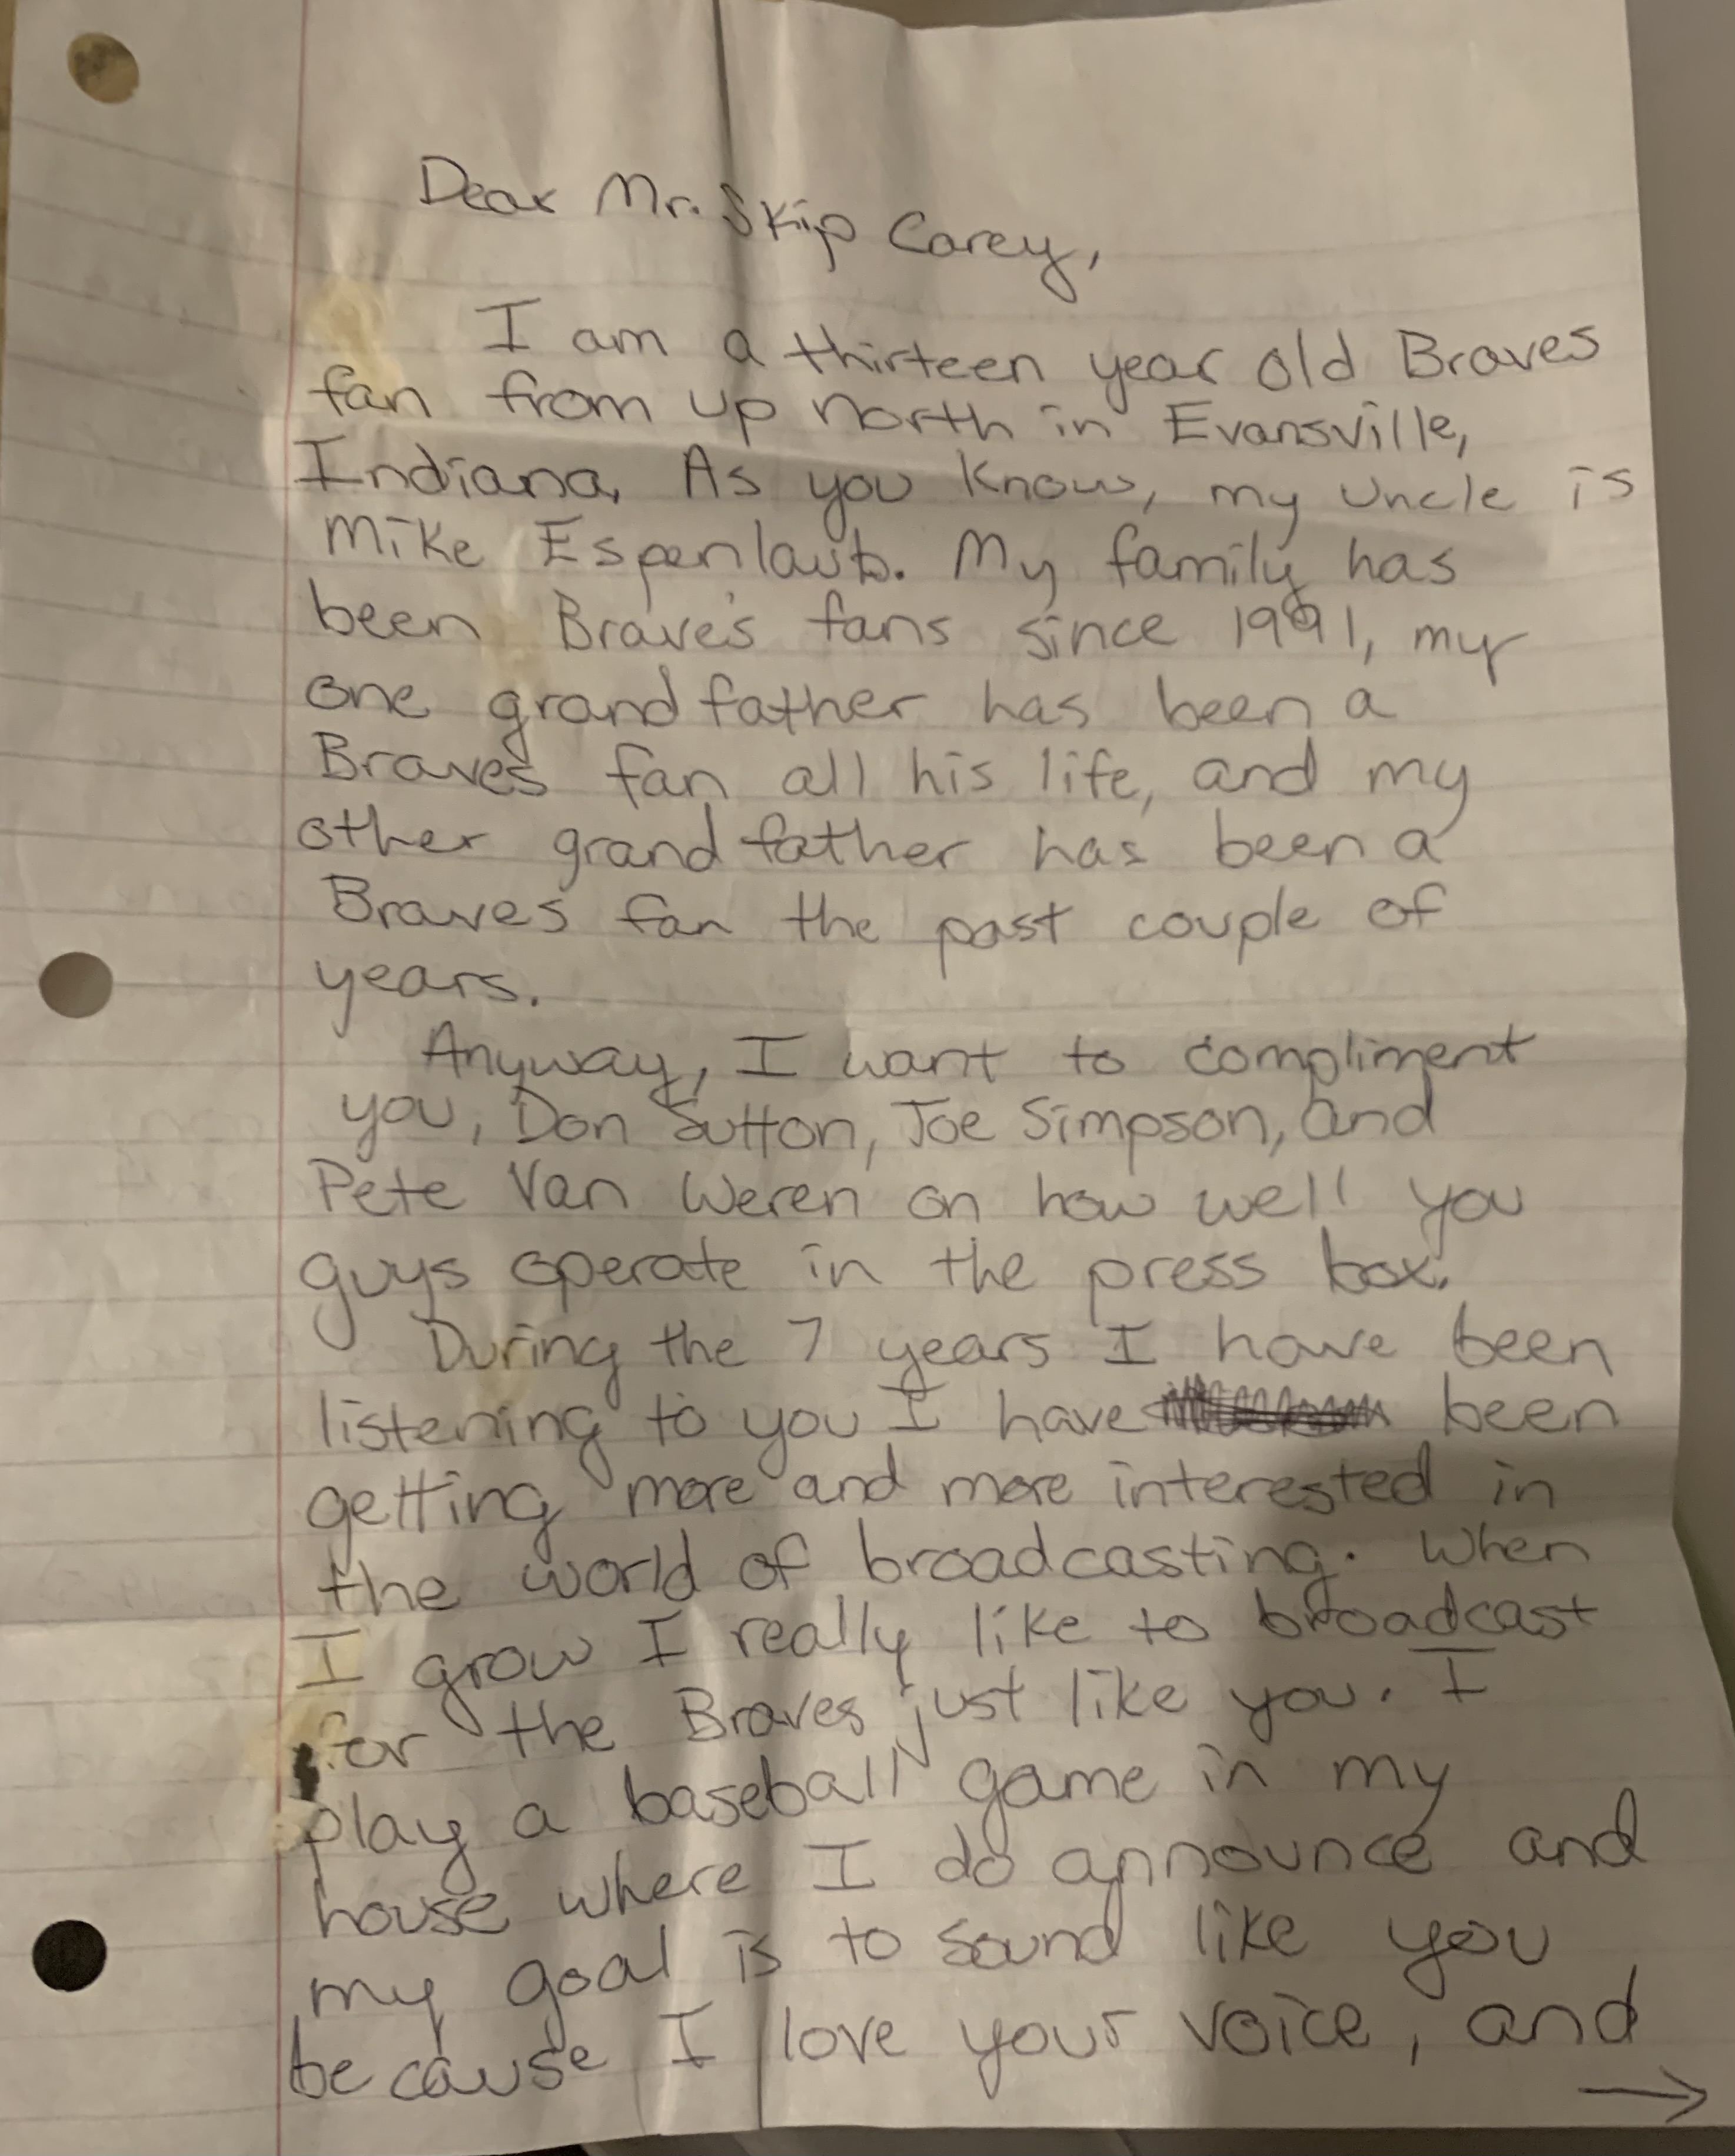 Dear Mr. Skip Carey,
I am a thirteen year old Braves
fan from up north in Evansville,
Indiana. As you know, my uncle is
Mike Espenlaub. My family has
been Brave's fans since 1991, my
one grandfather has been a
Braves fan all his life, and my
other grandfather has been a
Braves fan the past couple of
years.
Anyway, I want to compliment
you, Don Sutton, Joe Simpson, and
Pete Van Weren on how well you
guys operate in the press box.
During the 7 years I have been
listening to you I have been
getting more and more interested in
the world of broadcasting. When
I grow I really like to broadcast
for the Braves just like you. I
play a baseball game in my
house where I do announce and
my goal is to sound like you
because I love your voice, and
→